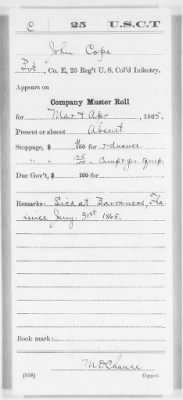 C 25 U.S.C.T
John Cope
Pvt., Co. E, 25 Reg't U. S. Col'd Infantry.
Appears on
Company Muster Roll
for Mar & Apr, 1865.
Present or absent Absent
Stoppage, $ 100 for
" " 100 Camp & gr. Equip.
Due Gov't, $ 100 for
Remarks: Sick at Barrancas, Fla.
since Jany. 31st 1865.
Book mark:
(358) Copyist.